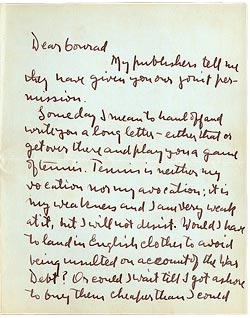 Dear Conrad
My publishers tell me
they have given you our joint per-
mission.
Some day I mean to haul off and
write you a long letter - either that or
get over there and play you a game
of tennis. Tennis is neither my
vocation nor my avocation; it is
my weakness and I am very weak
at it, but I will not desist. Would I have
to land in English clothes to avoid
being insulted on account of the War
Debt? Or could I wait till I got ashore
to buy them cheaper than I could